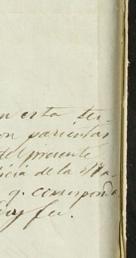 en esta ter-
con parientas
del presente
icia de la Ma-
q. corresponde
doy fee.